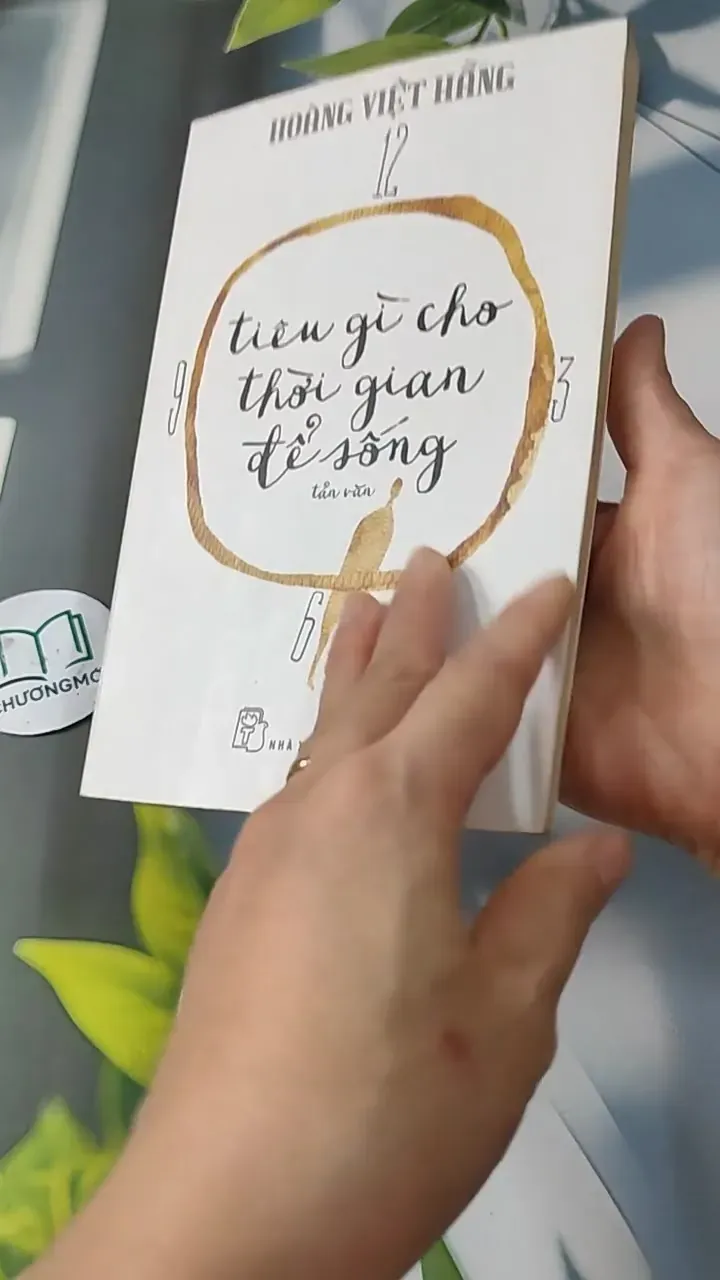 HOÀNG VIỆT HẰNG
12
tiêu gì cho
thời gian
để sống
tản văn
9
3
6
NHÀ
CHƯƠNGMỚ